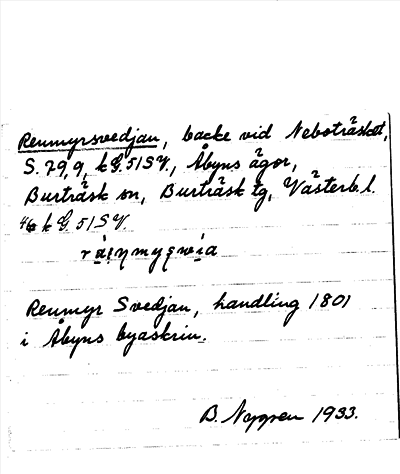 Renmyrsvedjan, backe vid Neboträsket,
S. 79,9, k G. 51 SV., Åbyns ägor,
Burträsk sn, Burträsk tg, Västerb. l.
k G. 51 SV.
Renmyr Svedjan, handling 1801
i Åbyns byaskrin.
B. Nygren 1933.